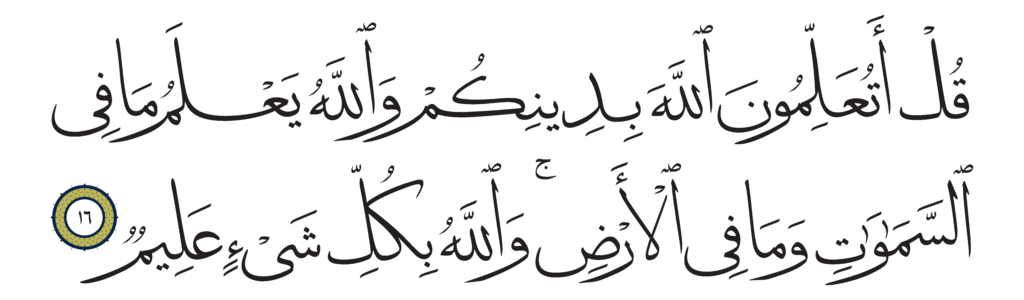 قُلْ أَتُعَلِّمُونَ ٱللَّهَ بِدِينِكُمْ وَٱللَّهُ يَعْلَمُ مَا فِى
ٱلسَّمَـٰوَٰتِ وَمَا فِى ٱلْأَرْضِ ۚ وَٱللَّهُ بِكُلِّ شَىْءٍ عَلِيمٌ ١٦